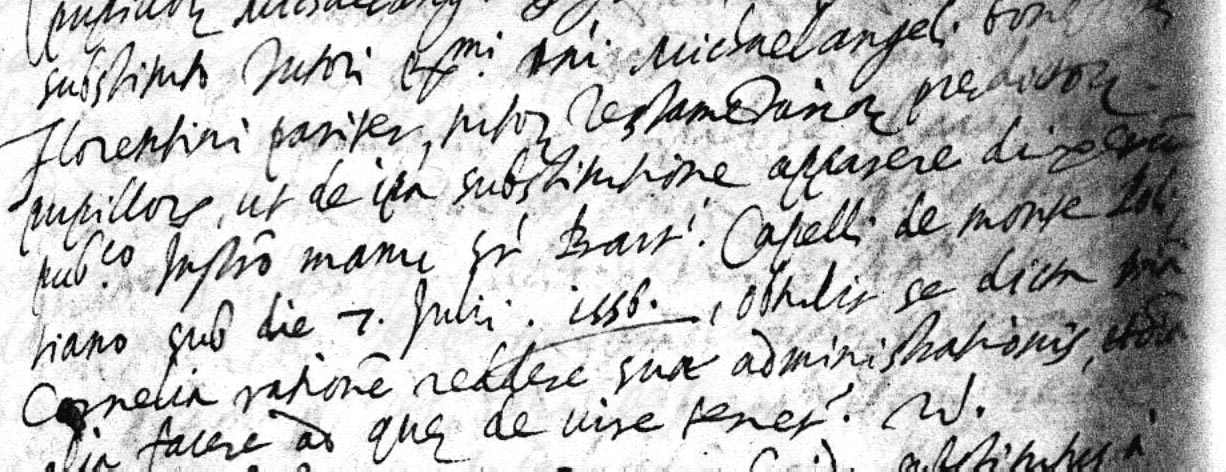 pupillor
substituto Tutori Exmi. Dni Michaelangeli bon
Florentini pariter, tutor Testamentarior predictor
pupillors, ut de ipa substitutione apparere dixerūt
pubco. Instro manu sr Bart. Capelli de monte Pol
tiano sub die 7. Julii. 1556., obtulit se dicta Dna
Cornelia rationē reddere suæ administrationis,
alia facere ad que de iure tenet. 
substitutus